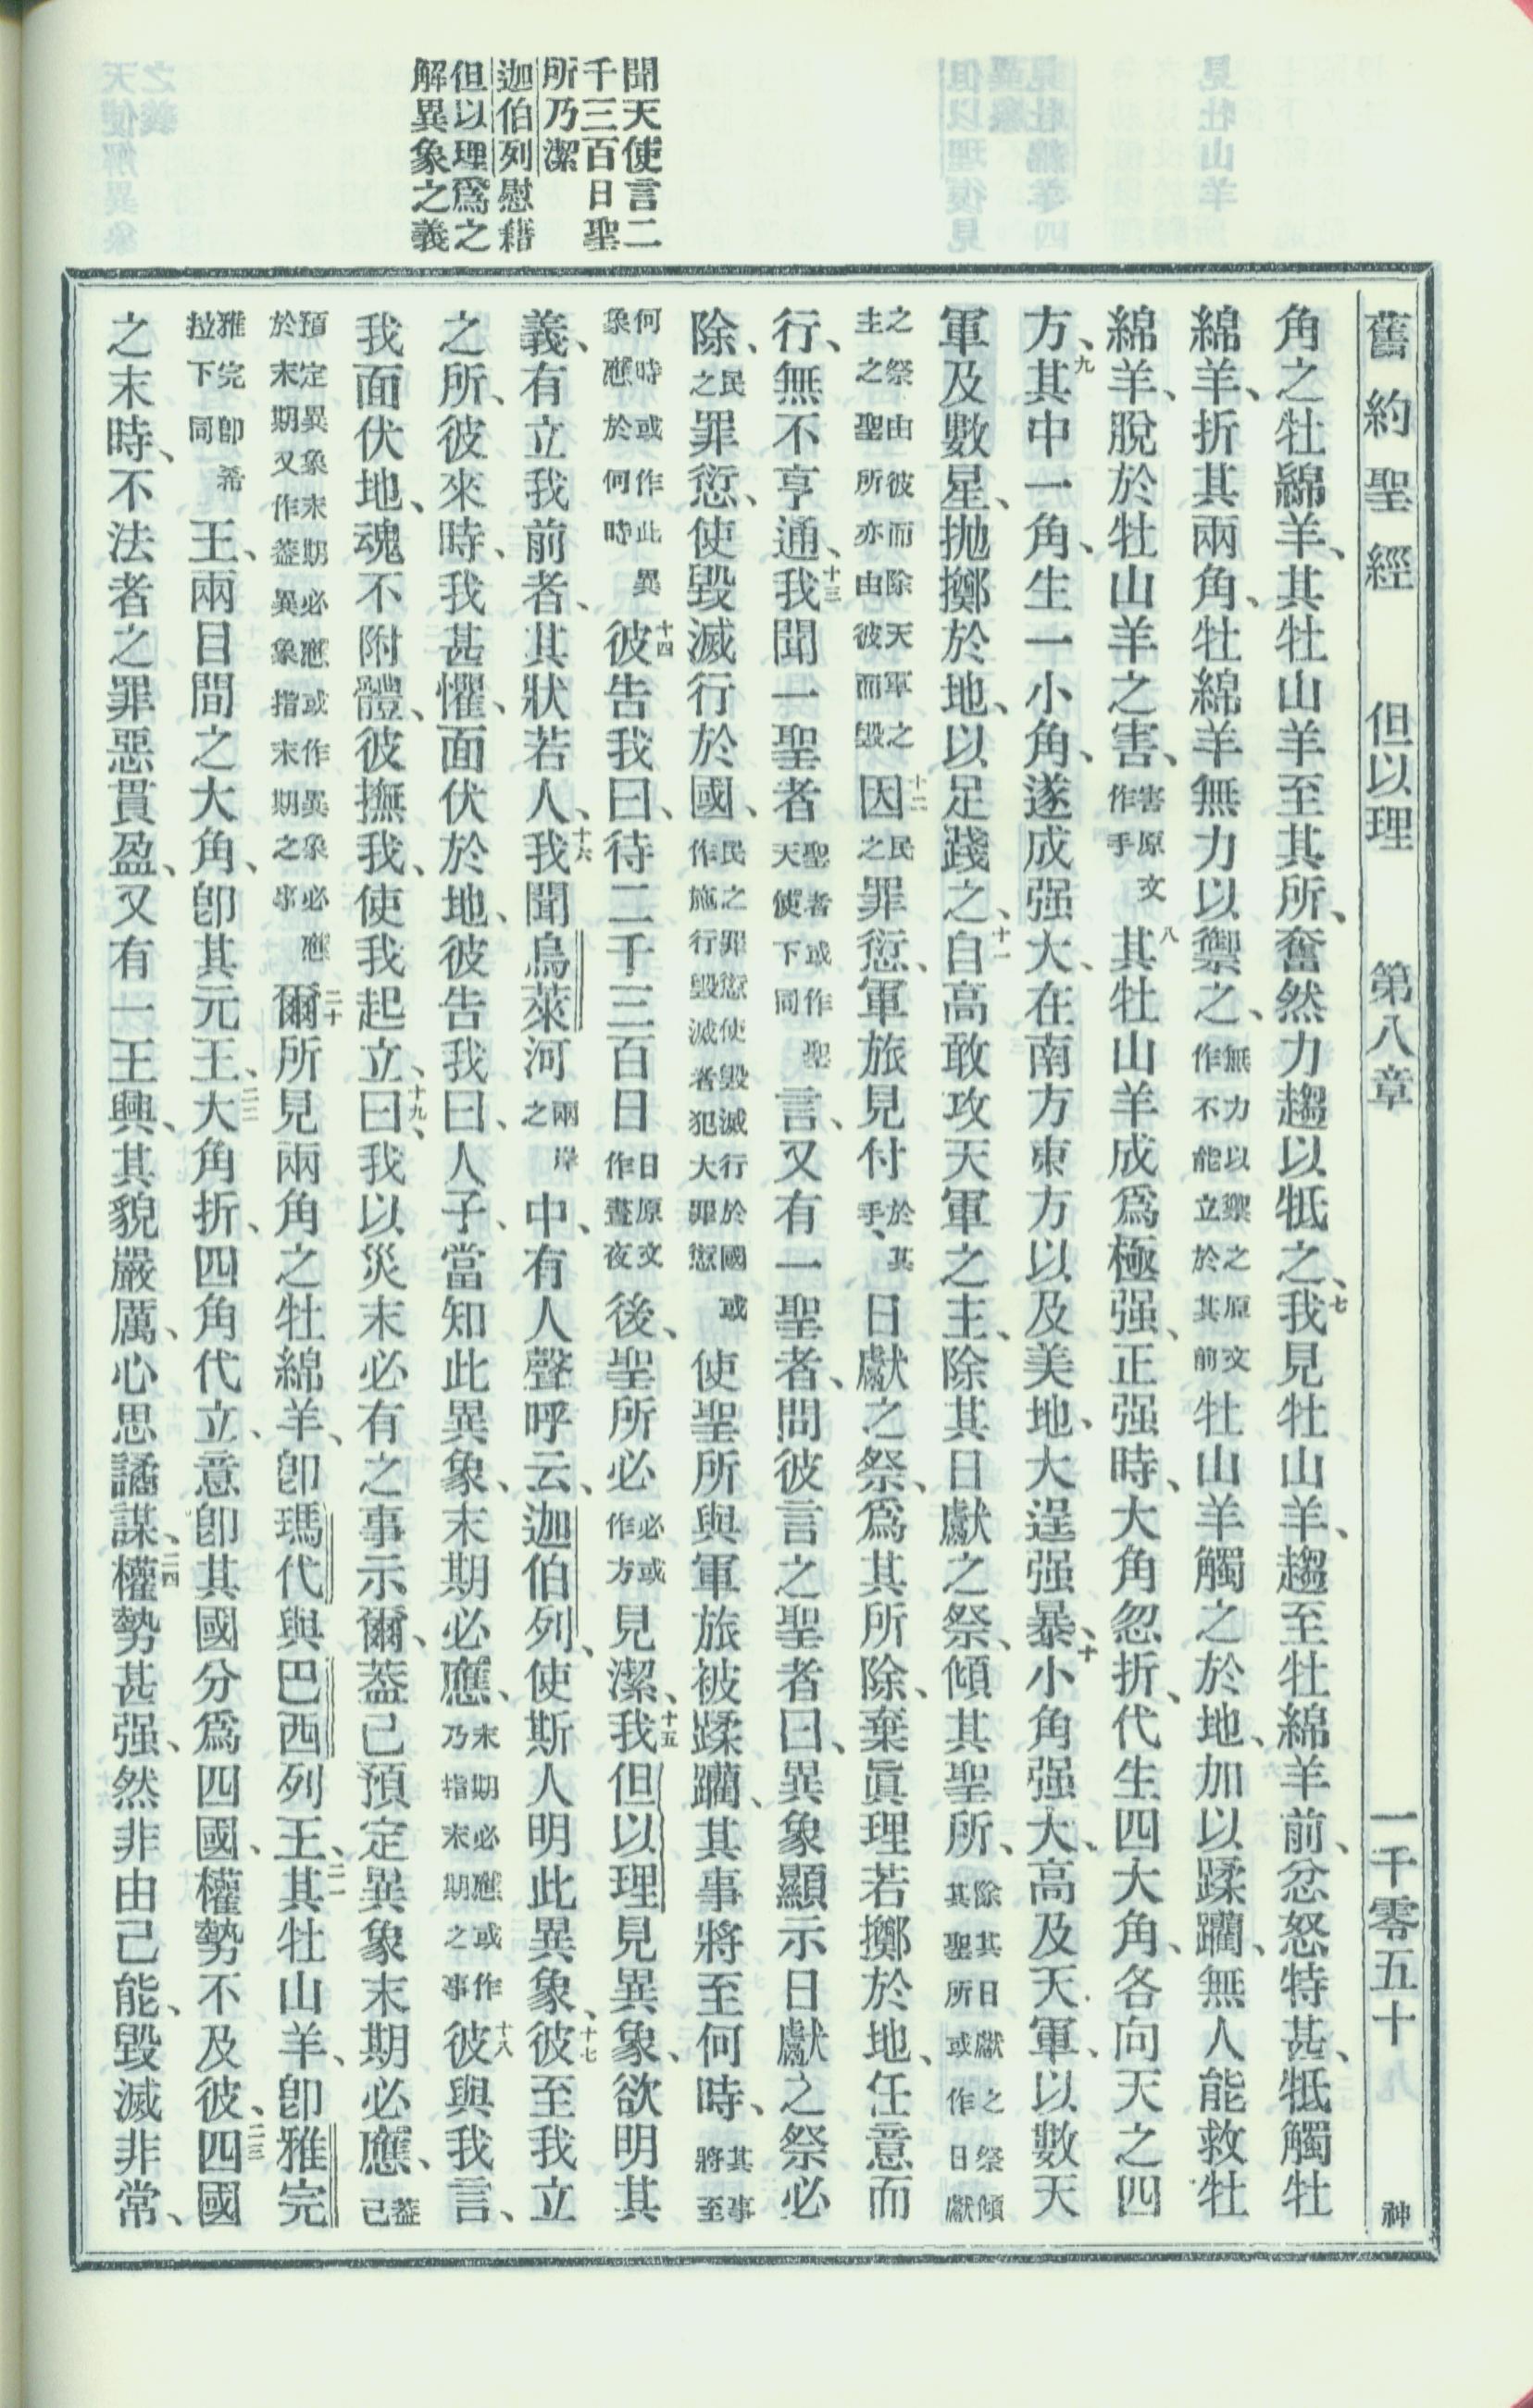 聞天使言二
千三百日聖
所乃潔
迦伯列慰藉
但以理爲之
解異象之義
舊約聖經 但以理 第八章 一千零五十 神
角之牡綿羊、其牡山羊至其所、奮然力趨以牴之、七我見牡山羊、趨至牡綿羊前、忿怒特甚、牴觸牡
綿羊、折其兩角、牡綿羊無力以禦之、無力以禦之原文作不能立於其前牡山羊觸之於地、加以蹂躪、無人能救牡
綿羊、脫於牡山羊之害、害原文作手八其牡山羊成爲極强、正强時、大角忽折、代生四大角、各向天之四
方、九其中一角、生一小角、遂成强大、在南方東方以及美地、大逞强暴、十小角强大、高及天軍、以數天
軍及數星、拋擲於地、以足踐之、十一自高敢攻天軍之主、除其日獻之祭、傾其聖所、除其日獻之祭傾其聖所或作日獻
之祭由彼而除天軍之主之聖所亦由彼而毀十二因民之罪愆、軍旅見付於其手、日獻之祭、爲其所除、棄眞理若擲於地、任意而
行、無不亨通、十三我聞一聖者聖者或作聖天使下同言、又有一聖者、問彼言之聖者曰、異象顯示日獻之祭必
除、民之罪愆、使毀滅行於國、民之罪愆使毀滅行於國或作施行毀滅者犯大罪愆使聖所與軍旅被蹂躪、其事將至何時、其事將至
何時或作此異象應於何時十四彼告我曰、待二千三百日日原文作晝夜後、聖所必必或作方見潔、十五我但以理見異象、欲明其
義、有立我前者、其狀若人、十六我聞烏萊河兩岸之中、有人聲呼云、迦伯列、使斯人明此異象、十七彼至我立
之所、彼來時、我甚懼、面伏於地、彼告我曰、人子、當知此異象、末期必應、末期必應或作乃指末期之事十八彼與我言、
我面伏地、魂不附體、彼撫我、使我起立、十九曰、我以災末必有之事示爾、蓋已預定異象末期必應、蓋已
預定異象末期必應或作異象必應於末期又作蓋異象指末期之事二十爾所見兩角之牡綿羊、卽瑪代與巴西列王、二一其牡山羊、卽雅完
雅完卽希拉下同王、兩目間之大角、卽其元王、二二大角折、四角代立、意卽其國分爲四國、權勢不及彼、二三四國
之末時、不法者之罪惡貫盈、又有一王興、其貌嚴厲、心思譎謀、二四權勢甚强、然非由己能、毀滅非常、